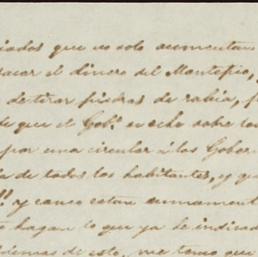 iados que no solo aumentan
sacar el dinero del Montepio,
de tirar piedras de rabia, p
de que el Gob.º se eche sobre
por una circular á los Gober
a de todos los habitantes, y q
y canco estan sumament
hagan lo que ya he indicado
demas de esto, me temo que